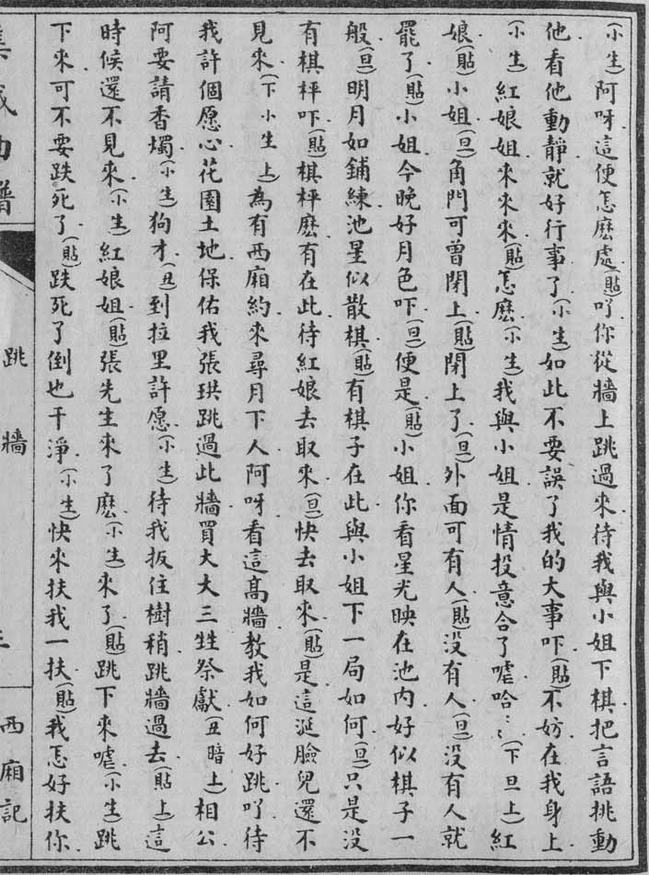 (小生)阿呀這便怎麽處(貼)吖你從牆上跳過來待我與小姐下棋把言語挑動
他看他動靜就好行事了(小生)如此不要誤了我的大事吓(貼)不妨在我身上
(小生)紅娘姐來來來(貼)怎麽(小生)我與小姐是情投意合了嚧哈⋮⋮(下旦上)紅
娘(貼)小姐(旦)角門可曾閉上(貼)閉上了(旦)外面可有人(貼)沒有人(旦)沒有人就
罷了(貼)小姐今晚好月色吓(旦)便是(貼)小姐你看星光映在池内好似棋子一
般(旦)明月如鋪練池星似散棋(貼)有棋子在此與小姐下一局如何(旦)只是沒
有棋枰吓(貼)棋枰麽有在此待紅娘去取來(旦)快去取來(貼)是這涎臉兒還不
見來(下小生上)為有西廂約來尋月下人阿呀看這髙牆教我如何好跳吖待
我許個愿心花園土地保佑我張珙跳過此牆買大大三牲祭獻(丑暗上)相公
阿要請香燭(小生)狗才(丑)到拉里許愿(小生)待我扳住樹稍跳牆過去(貼上)這
時候還不見來(小生)紅娘姐(貼)張先生來了麽(小生)來了(貼)跳下來嚧(小生)跳
下來可不要跌死了(貼)跌死了倒也干淨(小生)快來扶我一扶(貼)我怎好扶你
集成曲譜
跳牆
西廂記